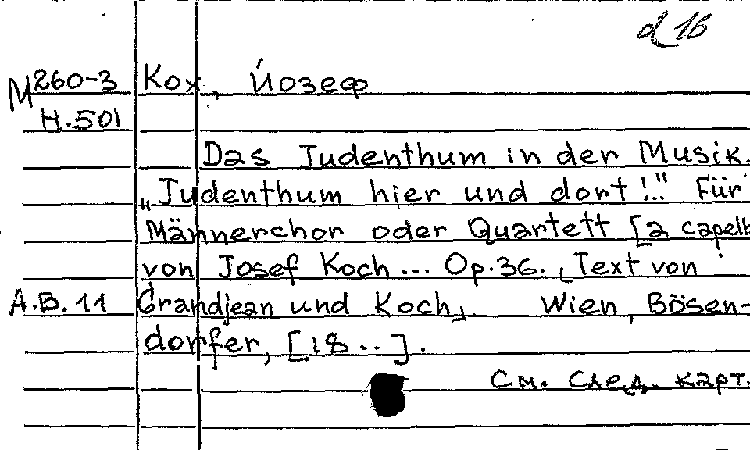 d 16
M 260-3 Кох, Йозеф
H.501
Das Judenthum in der Musik.
„Judenthum hier und dort!." Für
Männerchor oder Quartett [a capell
von Josef Koch... Op.36. [Text von
A.B.11 Grandjean und Koch]. Wien, Bösen-
dorfer, [18..].
См. след. карт.